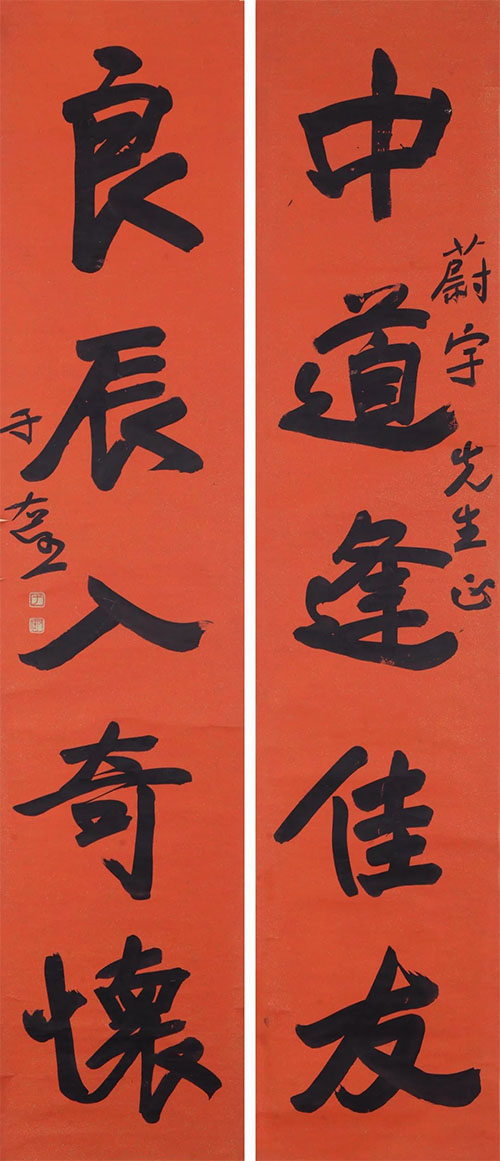 中道逢佳友
蔚宇先生正
良辰入奇懷
于右任